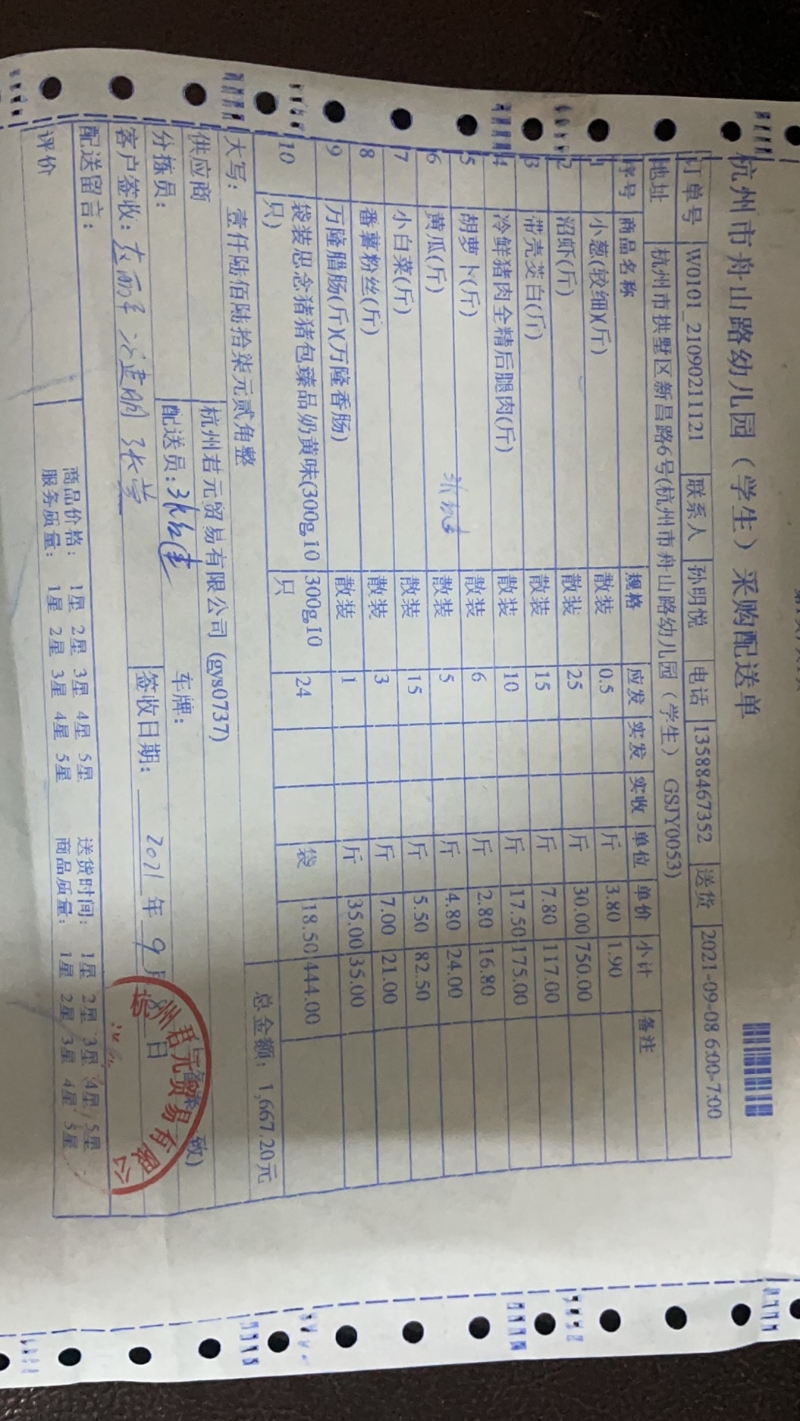 杭州市舟山路幼儿园（学生）采购配送单
订单号 W0101_21090211121 联系人 孙明悦 电话 13588467352 送货 2021-09-08 6:00-7:00
地址 杭州市拱墅区新昌路6号(杭州市舟山路幼儿园（学生） GSJY0053)
序号 商品名称 规格 应发 实发 实收 单位 单价 小计 备注
1 小葱(较细)(斤) 散装 0.5 斤 3.80 1.90
2 沼虾(斤) 散装 25 斤 30.00 750.00
3 带壳茭白(斤) 散装 15 斤 7.80 117.00
4 冷鲜猪肉全精后腿肉(斤) 散装 10 斤 17.50 175.00
5 胡萝卜(斤) 散装 6 斤 2.80 16.80
6 黄瓜(斤) 散装 5 斤 4.80 24.00
7 小白菜(斤) 散装 15 斤 5.50 82.50
8 番薯粉丝(斤) 散装 3 斤 7.00 21.00
9 万隆腊肠(斤)(万隆香肠) 散装 1 斤 35.00 35.00
10 袋装思念猪猪包臻品奶黄味(300g,10只) 300g,10只 24 袋 18.50 444.00
大写：壹仟陆佰陆拾柒元贰角整 总金额：1,667.20元
供应商 杭州君元贸易有限公司 (gys0737)
分拣员： 配送员： 车牌：
客户签收： 签收日期： 2021 年 9 月 8 日
配送留言：
评价 商品价格： 1星 2星 3星 4星 5星 送货时间： 1星 2星 3星 4星 5星
服务质量： 1星 2星 3星 4星 5星 商品质量： 1星 2星 3星 4星 5星
州君元贸易有限公